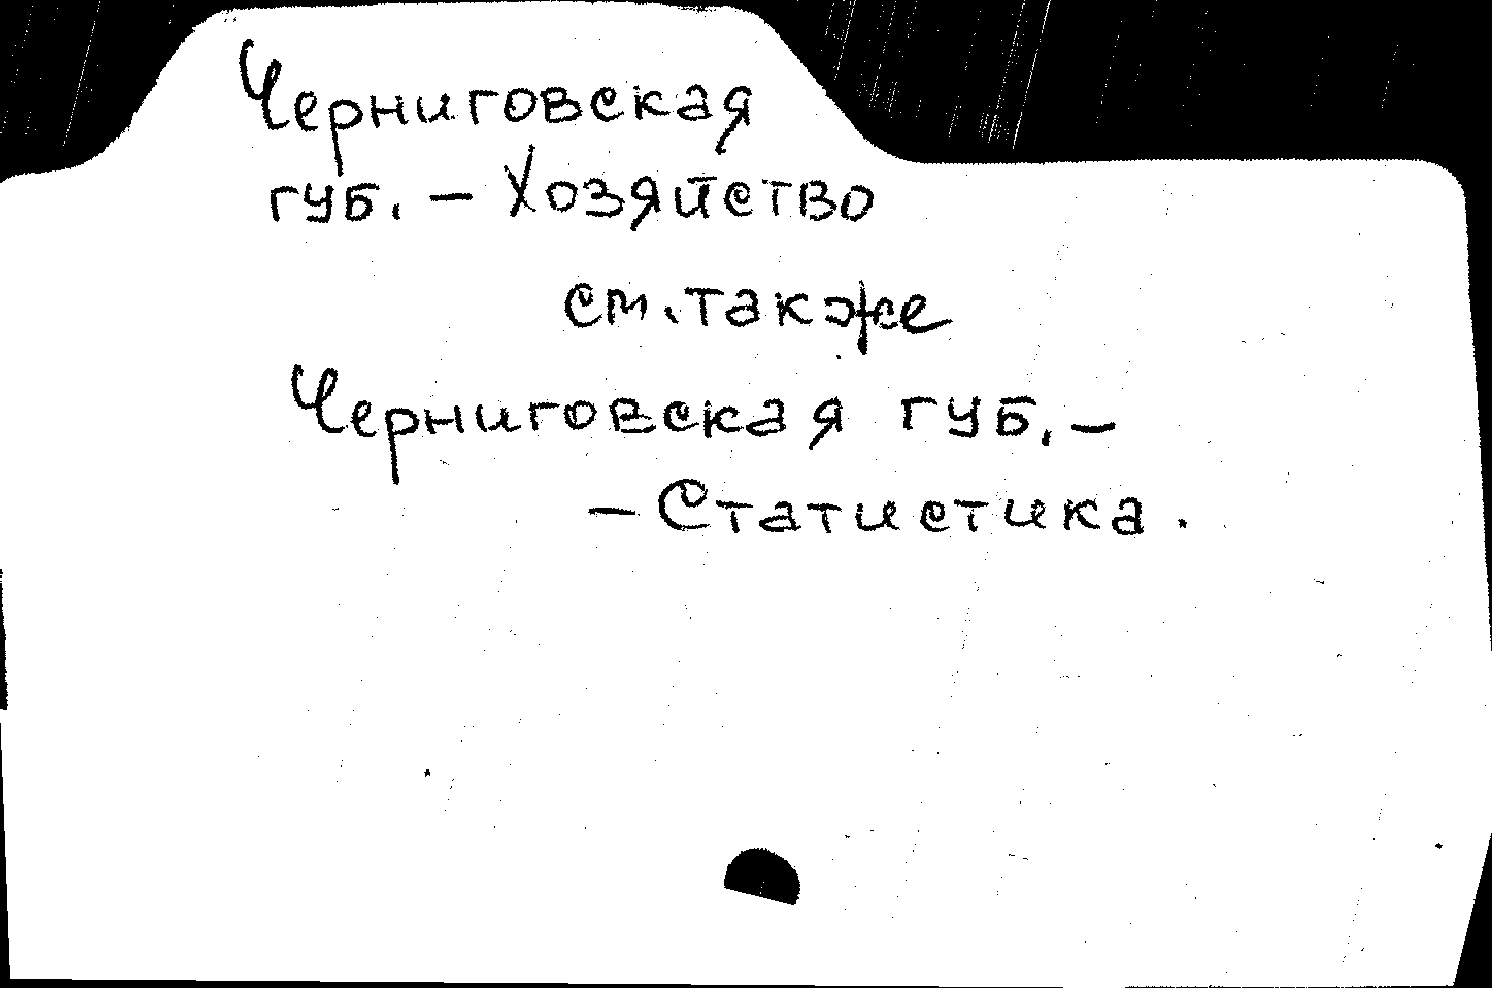 Черниговская
губ. – Хозяйство
см. также
Черниговская губ. –
– Статистика.